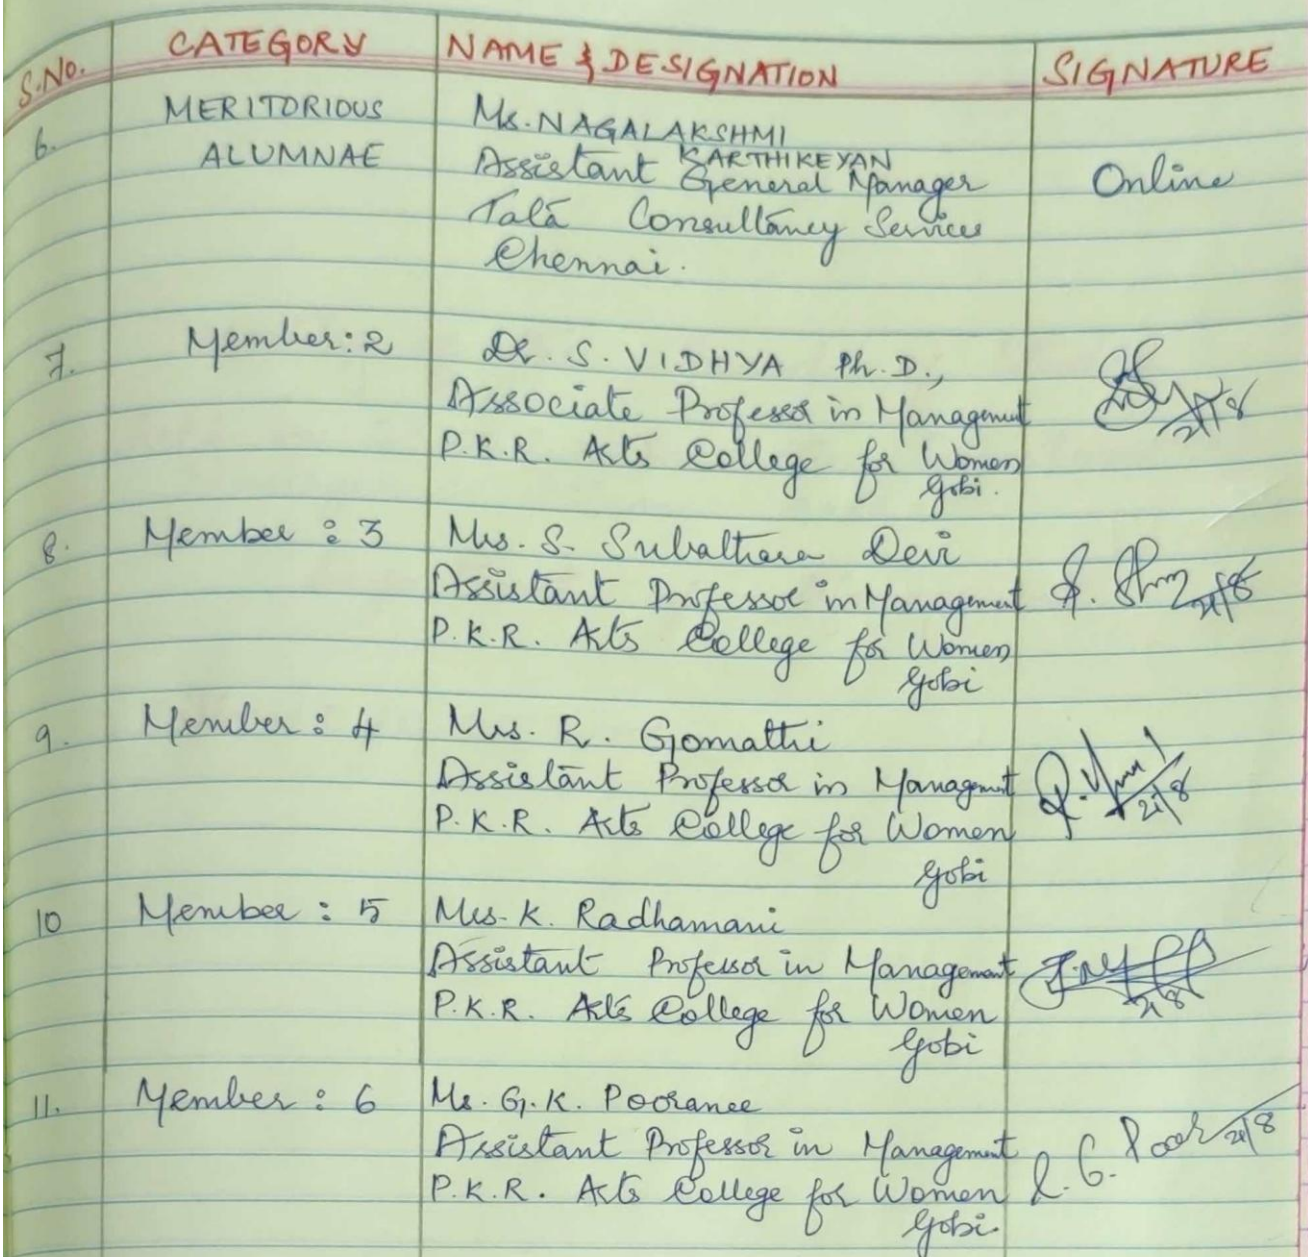 S.No. CATEGORY NAME & DESIGNATION SIGNATURE
6. MERITORIOUS ALUMNAE
Ms. NAGALAKSHMI
KARTHIKEYAN
Assistant General Manager
Tata Consultancy Services
Chennai.
Online
7. Member: 2
Dr. S. VIDHYA Ph.D.,
Associate Professor in Management
P.K.R. Arts College for Women
Gobi.
21/8
8. Member : 3
Mrs. S. Subalthara Devi
Assistant Professor in Management
P.K.R. Arts College for Women
Gobi
S. 21/8
9. Member : 4
Mrs. R. Gomathi
Assistant Professor in Management
P.K.R. Arts College for Women
Gobi
21/8
10 Member : 5
Mrs. K. Radhamani
Assistant Professor in Management
P.K.R. Arts College for Women
Gobi
21/8
11. Member : 6
Ms. G.K. Pooranee
Assistant Professor in Management
P.K.R. Arts College for Women
Gobi.
21/8